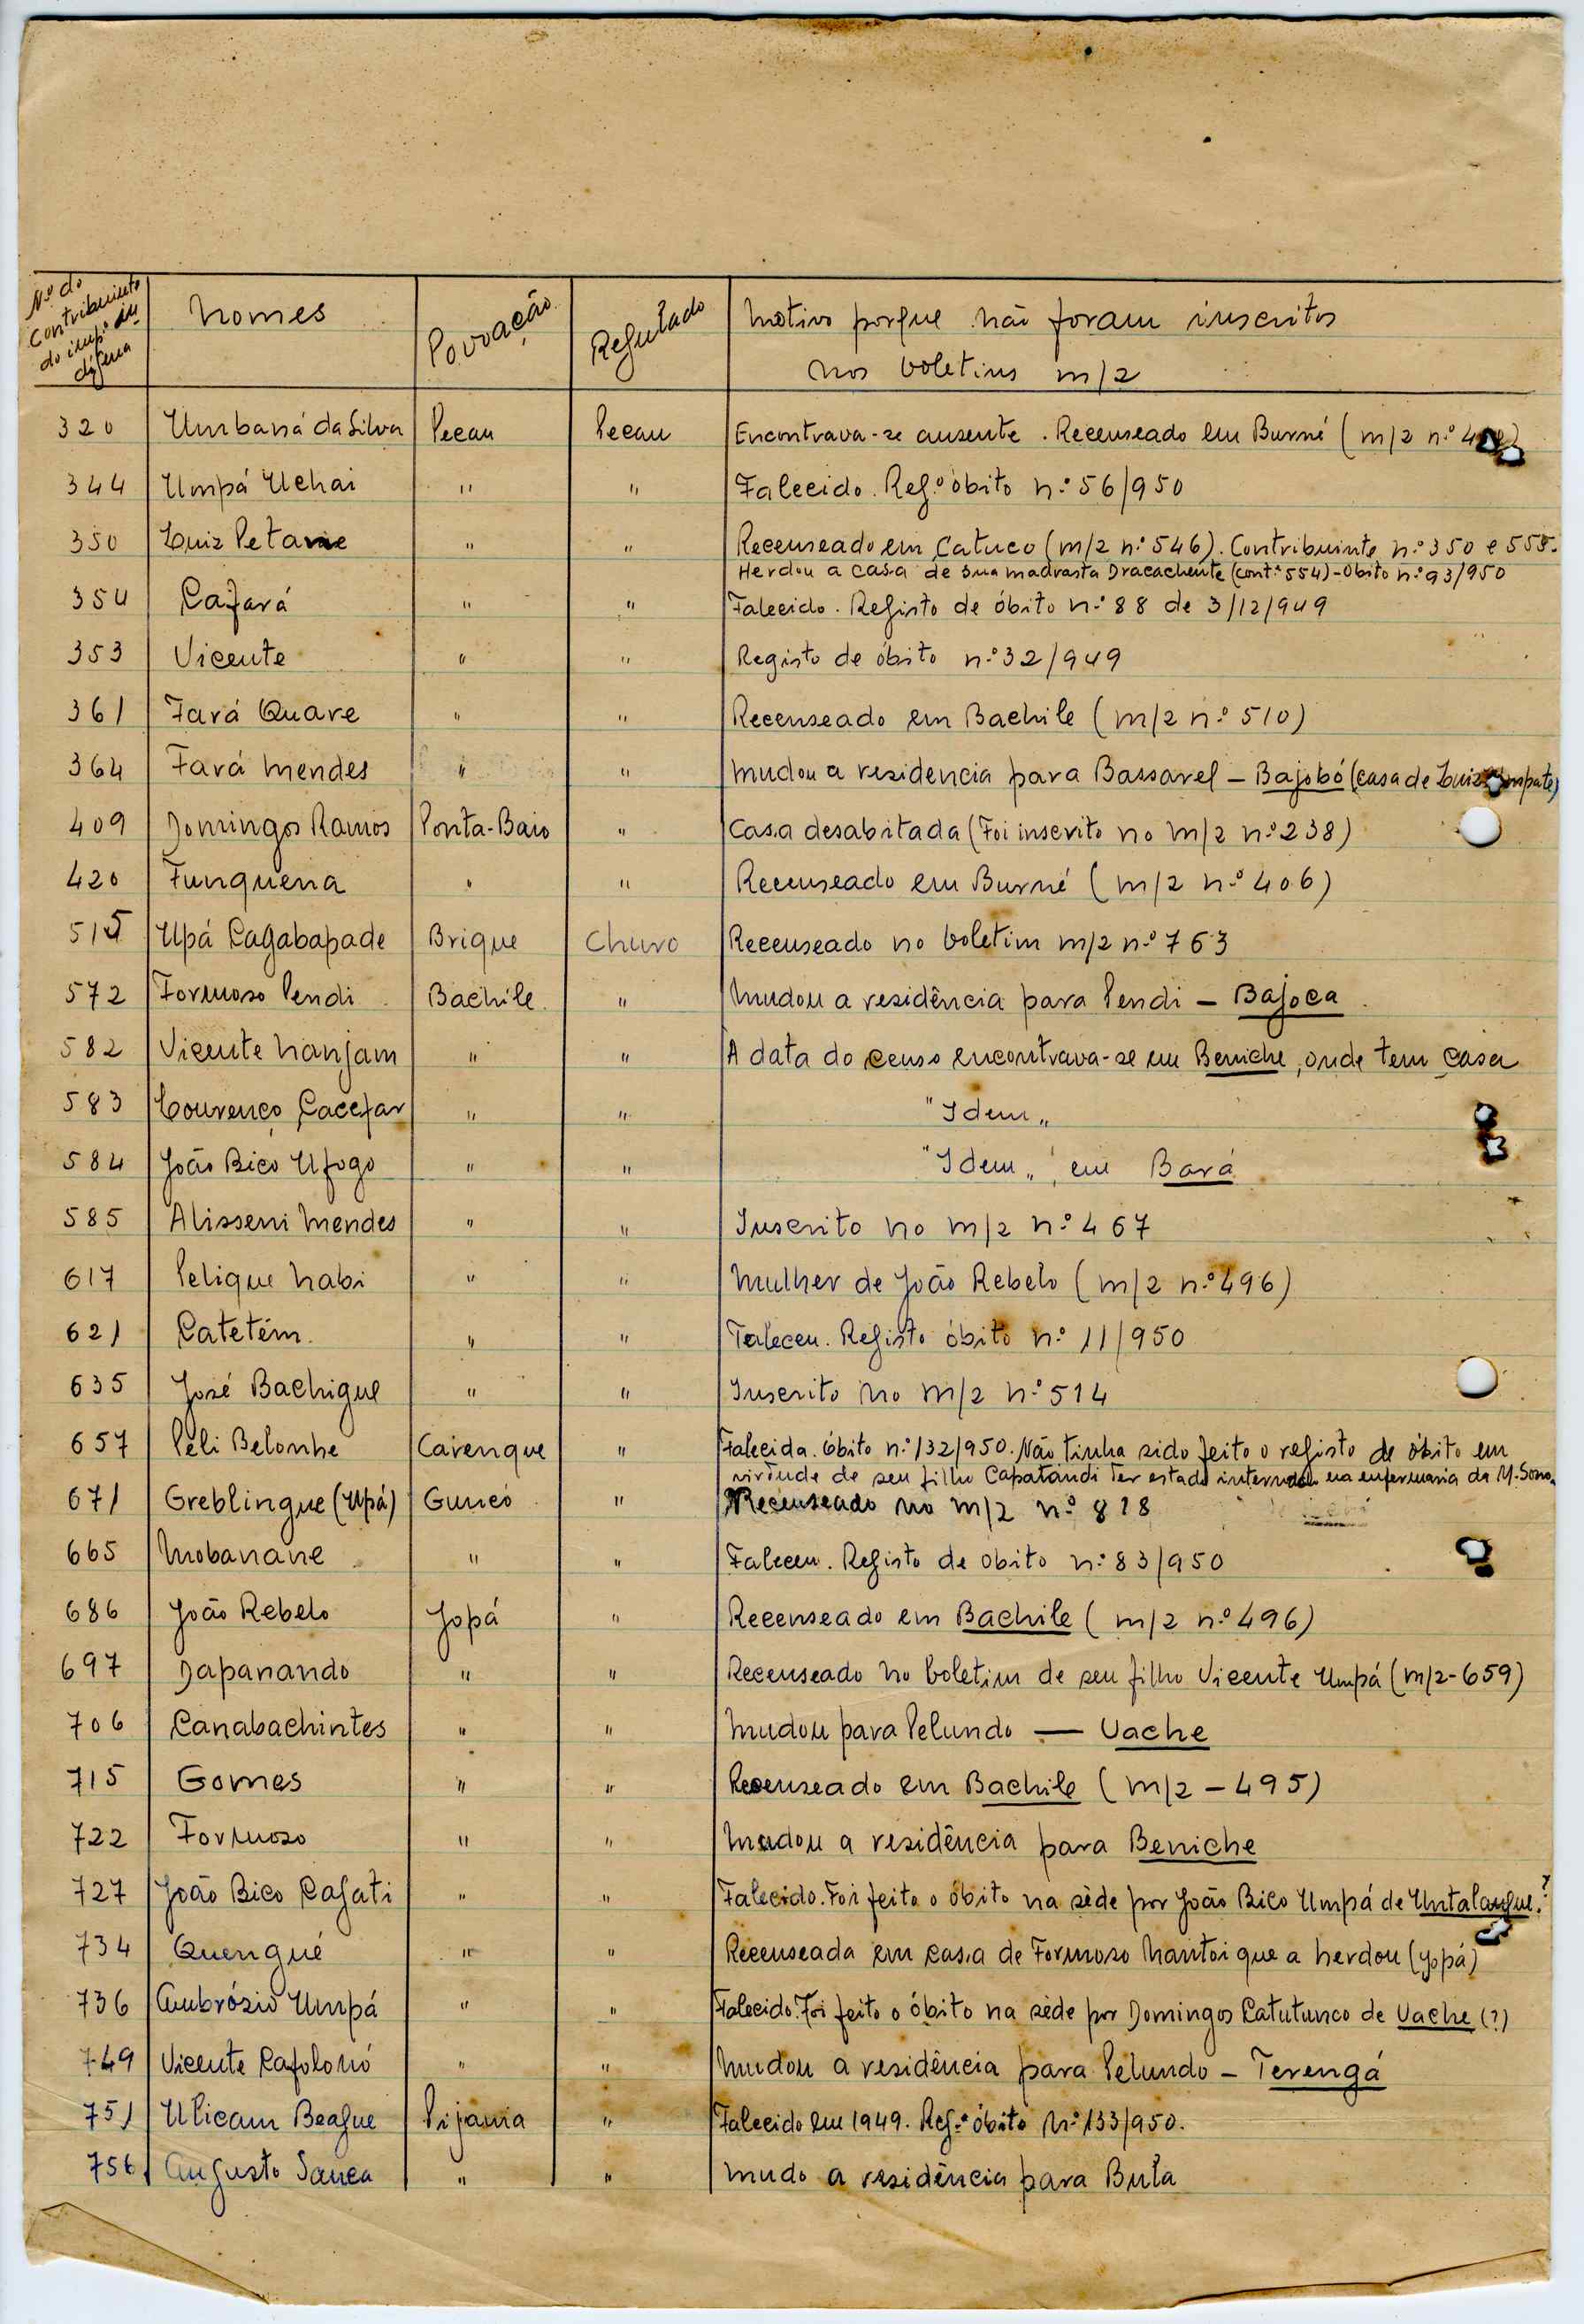 Nº do contribuinte do impº indígena | Nomes | Povoação | Regulado | Motivo porque não foram inscritos
nos boletins m/2
320 | Umbaná da Silva | Pecau | Pecau | Encontrava-se ausente. Recenseado em Burné (m/2 n.º
344 | Umpá Uchai | " | " | Falecido. Reg.º óbito n.º 56/950
350 | Luiz Petame | " | " | Recenseado em Catuco (m/2 n.º 546). Contribuinte n.º 350 e 555.
Herdou a casa de sua madrasta Dracachente (cont.º 554) - Óbito n.º 93/950
354 | Cafará | " | " | Falecido. Registo de óbito n.º 88 de 3/12/949
353 | Vicente | " | " | Registo de óbito n.º 32/949
361 | Fará Quare | " | " | Recenseado em Bachile (m/2 n.º 510)
364 | Fará Mendes | " | " | Mudou a residencia para Bassarel - Bajobó (casa de Luiz
409 | Domingos Ramos | Ponta-Baio | " | Casa desabitada (Foi inscrito no m/2 n.º 238)
420 | Funquena | " | " | Recenseado em Burné (m/2 n.º 406)
515 | Upá Cagabapade | Brique | Churo | Recenseado no boletim m/2 n.º 763
572 | Formoso Pendi | Bachile | " | Mudou a residência para Pendi - Bajoca
582 | Vicente Nanjam | " | " | A data do censo encontrava-se em Beniche, onde tem casa
583 | Lourenço Cacefar | " | " | "Idem„
584 | João Bico Ufogo | " | " | "Idem„, em Bará
585 | Alisseni Mendes | " | " | Inscrito no m/2 n.º 467
617 | Pelique Nabi | " | " | Mulher de João Rebelo (m/2 n.º 496)
621 | Catetém. | " | " | Faleceu. Registo óbito n.º 11/950
635 | José Bachigue | " | " | Inscrito no m/2 n.º 514
657 | Peli Belonhe | Cairenque | " | Falecida. Óbito n.º 132/950. Não tinha sido feito o registo de óbito em
virtude de seu filho Capatandi ter estado internado na enfermaria da M. Sono.
671 | Greblingue (Upá) | Guncó | " | Recenseado no m/2 n.º 818
665 | Mobanane | " | " | Faleceu. Registo de obito n.º 83/950
686 | João Rebelo | Jopá | " | Recenseado em Bachile (m/2 n.º 496)
697 | Dapanando | " | " | Recenseado no boletim de seu filho Vicente Umpá (m/2-659)
706 | Canabachintes | " | " | Mudou para Pelundo — Uache
715 | Gomes | " | " | Recenseado em Bachile (m/2 - 495)
722 | Formoso | " | " | Mudou a residência para Beniche
727 | João Bico Cagati | " | " | Falecido. Foi feito o óbito na séde por João Bico Umpá de Untalangue.?
734 | Quengué | " | " | Recenseada em casa de Formoso Nantoi que a herdou (Jopá)
736 | Ambrósio Umpá | " | " | Falecido. Foi feito o óbito na séde por Domingos Catutunco de Uache (?)
749 | Vicente Cafolonó | " | " | Mudou a residência para Pelundo - Terengá
751 | Ulicam Beague | Pijama | " | Falecido em 1949. Reg.º óbito N.º 133/950.
756 | Augusto Sanca | " | " | Mudo a residência para Bula